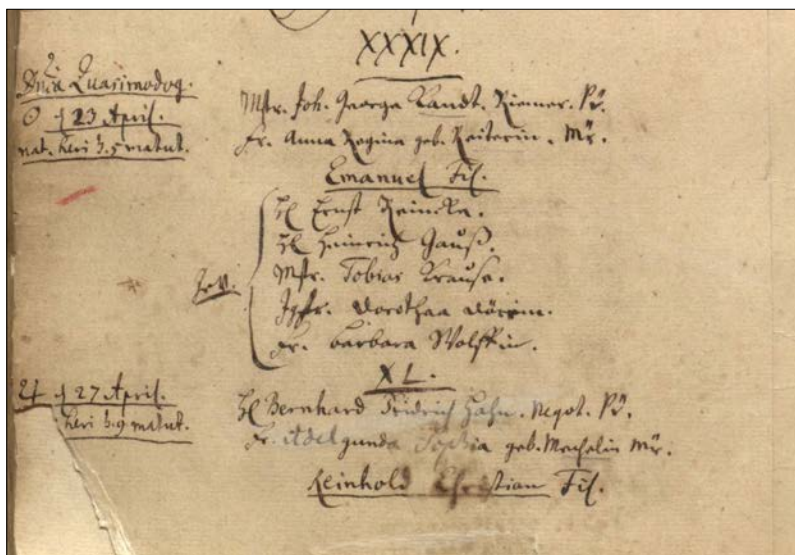 XXXIX.
Dnica Quasimodog.
☉ d 23 April.
nat. heri h. 5 matut.
Mstr. Joh. George Kandt. Riemer. Pr.
Fr. Anna Regina geb. Reiterin. Mr.
Emanuel Fil.
H Ernst Reincke.
H Heinrich Gauß.
Mstr. Tobias Krause.
Jgfr. Dorothea
Fr. Barbara Wolffin.
XL.
♃ d 27 April.
heri h. 9 matut.
H Bernhard Fridrich Hahn. Negot. Pr.
Fr. Adelgunda Sophia geb. Mechelin Mr.
Reinhold Christian Fil.